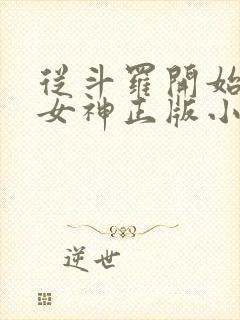 從斗羅開始
女神正版小
逆世